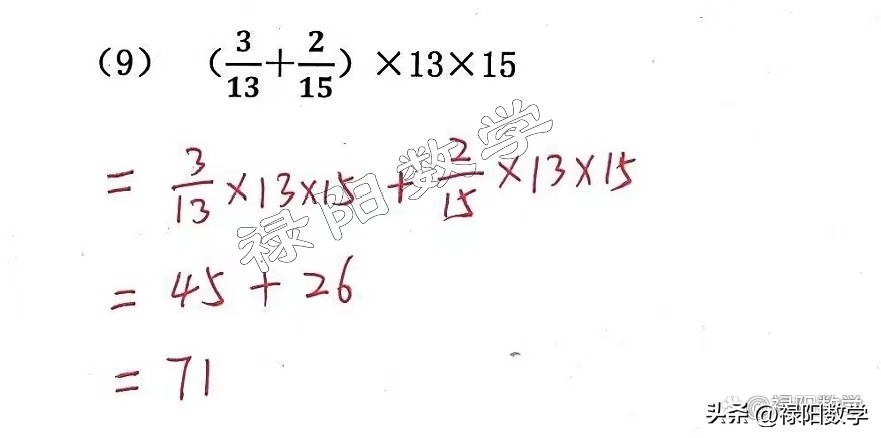 （9） （3/13＋2/15）×13×15
= 3/13×13×15 + 2/15×13×15
= 45 + 26
= 71
禄阳数学
头条 @禄阳数学
@禄阳数学